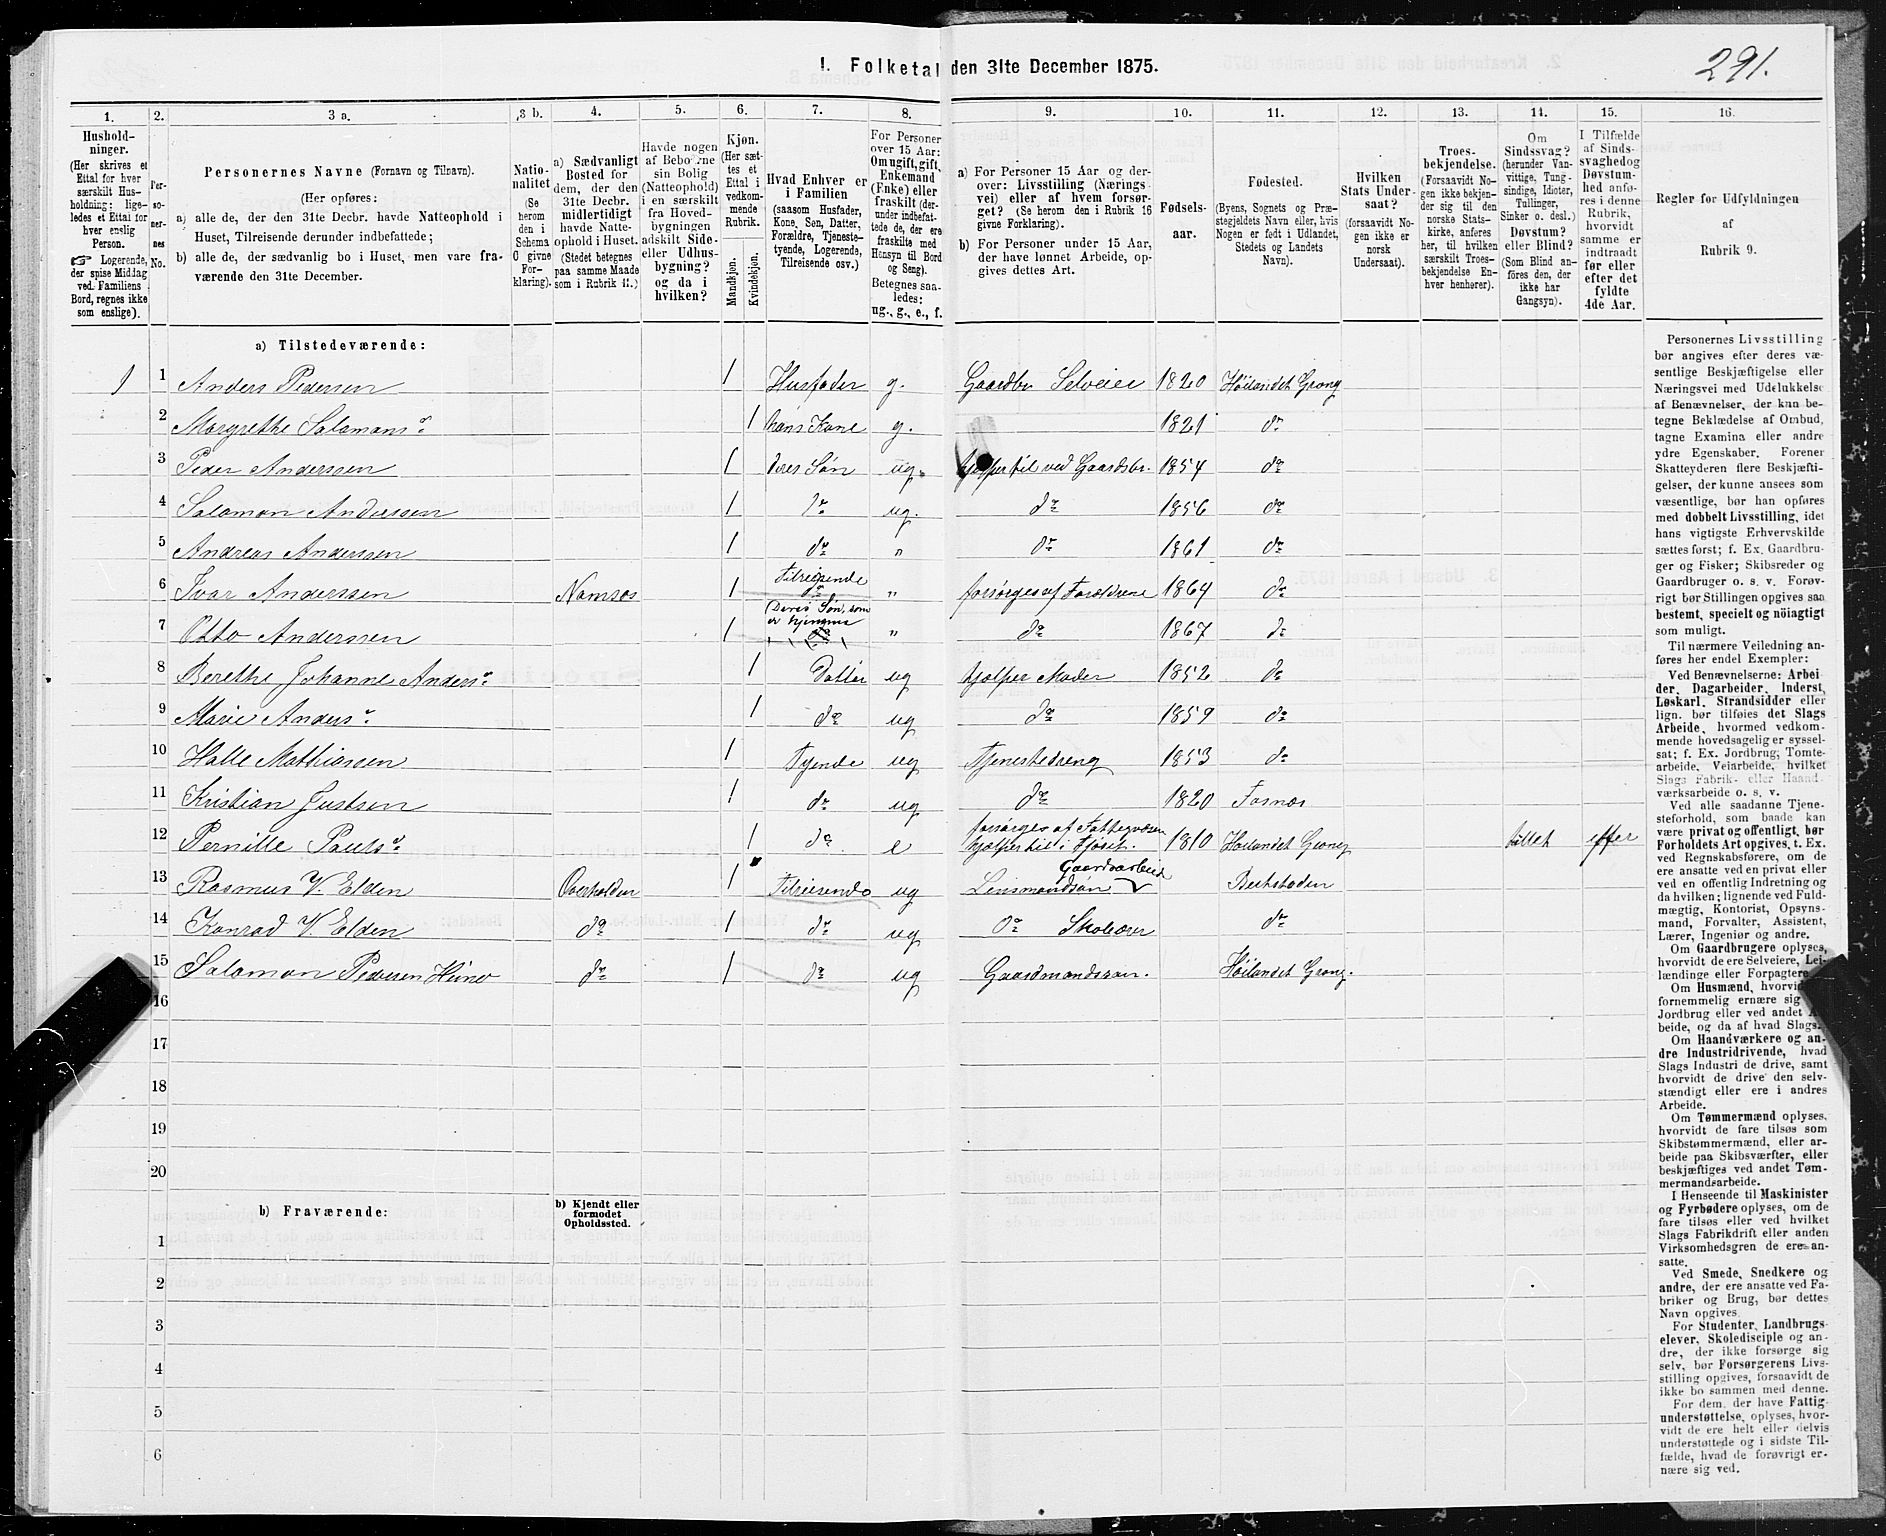 I. Folketal den 31te December 1875.
291.
1. 2. 3 a. 3 b. 4. 5. 6. 7. 8. 9. 10. 11. 12. 13. 14. 15. 16.
Hushold-
ninger.
(Her skrives et
Ettal for hver
særskilt Hus-
holdning; lige-
ledes et Ettal for
hver enslig
Person.
☞ Logerende,
der spise Middag
ved Familiens
Bord, regnes ikke
som enslige).
Per-
so-
ner-
nes
No.
Personernes Navne (Fornavn og Tilnavn).
(Her opføres:
a) alle de, der den 31te Decbr. havde Natteophold i
Huset, Tilreisende derunder indbefattede;
b) alle de, der sædvanlig bo i Huset, men vare fra-
værende den 31te December.
Natio-
nalitet
(Se
herom
den i
Schema
C givne
For-
klaring).
a) Sædvanligt
Bosted for
dem, der den
31te Decbr.
midlertidigt
havde Natte-
ophold i Huset.
(Stedet betegnes
paa samme Maade
som i Rubrik 11.)
Havde nogen
af Beboerne
sin Bolig
(Natteophold)
i en særskilt
fra Hoved-
bygningen
adskilt Side-
eller Udhus-
bygning?
og da i
hvilken?
Kjøn.
(Her sæt-
tes et
Ettal i
vedkom-
mende
Rubrik.
Mandkjøn.
Kvindekjøn.
Hvad Enhver er
i Familien
(saasom Husfader,
Kone, Søn, Datter,
Forældre, Tjeneste-
tyende, Logerende,
Tilreisende osv.)
For Personer
over 15 Aar:
Om ugift, gift,
Enkemand
(Enke) eller
fraskilt (der-
under indbefat-
tede de, der ere
fraskilte med
Hensyn til Bord
og Seng).
Betegnes saa-
ledes:
ug., g., e., f.
a) For Personer 15 Aar og der-
over: Livsstilling (Nærings-
vei) eller af hvem forsør-
get? (Se herom den i Rubrik 16
givne Forklaring).
b) For Personer under 15 Aar,
der have lønnet Arbeide, op-
gives dettes Art.
Fødsels-
aar.
Fødested.
(Byens, Sognets og Præ-
stegjeldets Navn eller, hvis
Nogen er født i Udlandet,
Stedets og Landets
Navn).
Hvilken
Stats Under-
saat?
(forsaavidt No-
gen ikke er
norsk
Undersaat).
Troes-
bekjendelse.
(Forsaavidt No-
gen ikke bekjen-
der sig til den
norske Stats-
kirke, anføres
her, til hvilken
særskilt Troes-
bekjendelse En-
hver henhører).
Om
Sindssvag?
(herunder Van-
vittige, Tung-
sindige, Idioter,
Tullinger,
Sinker o. desl.)
Døvstum?
eller Blind?
(Som Blind an-
føres den, der
ikke har
Gangsyn).
I Tilfælde
af Sinds-
svaghed og
Døvstum-
hed anfø-
res i denne
Rubrik,
hvorvidt
samme er
indtraadt
før eller
efter det
fyldte
4de Aar.
Regler for Udfyldningen
af
Rubrik 9.
a) Tilstedeværende:
1 1 Anders Pedersen 1 Husfader g. Gaardbr Selveier 1820 Höilandet Grong
2 Margrethe Salomonsd. 1 hans Kone g. 1821 do
3 Peder Anderssen 1 deres Søn ug. hjelper til ved Gaardsbr. 1854 do
4 Salomon Anderssen 1 do ug. do 1856 do
5 Andreas Anderssen 1 do " do 1861 do
6 Ivar Anderssen Namsos 1 Tilreisende do " forsørges af Forældrene 1864 do
(Deres Søn, som
er hjemme
7 Otto Anderssen 1 do " do 1867 do
8 Berethe Johanne Andersd. 1 Datter ug hjelper Moder 1852 do
9 Marie Andersd. 1 do ug do 1859 do
10 Halle Mathiassen 1 Tyende ug Tjenestedreng 1853 do
11 Kristian Justsen 1 do ug do 1820 Fosnæs
12 Pernille Paulsd. 1 do e forsørges af Fattigvæsen
hjelper til i Fjöset. 1810 Höilandet Grong tullet efter
13 Rasmus V. Elden Overhalden 1 Tilreisende ug Lensmandsøn Gaardsarbeid Beitstaden
14 Konrad V. Elden do 1 do ug do Skolelærer do
15 Salomon Pedersen Hiino do 1 do ug Gaardmandssøn. Höilandet Grong.
16
17
18
19
20
b) Fraværende:
b) Kjendt eller
formodet
Opholdssted.
1
2
3
4
5
6
Personernes Livsstilling
bør angives efter deres væ-
sentlige Beskjæftigelse eller
Næringsvei med Udelukkelse
af Benævnelser, der kun be-
tegne Beklædelse af Ombud,
tagne Examina eller andre
ydre Egenskaber. Forener
Skatteyderen flere Beskjæfti-
gelser, der kunne ansees som
væsentlige, bør han opføres
med dobbelt Livsstilling, idet
hans vigtigste Erhvervskilde
sættes først; f. Ex. Gaardbru-
ger og Fisker; Skibsreder og
Gaardbruger o. s. v. Forøv-
rigt bør Stillingen opgives saa
bestemt, specielt og nöiagtigt
som muligt.
Til nærmere Veiledning an-
føres her endel Exempler:
Ved Benævnelserne: Arbei
der, Dagarbeider, Inderst,
Løskarl, Strandsidder eller
lign. bør tilføies det Slags
Arbeide, hvormed vedkom-
mende hovedsagelig er syssel-
sat; f. Ex. Jordbrug; Tomte-
arbeide, Veiarbeide, hvilket
Slags Fabrik- eller Haand-
værksarbeide o. s. v.
Ved alle saadanne Tjene-
steforhold, som baade kan
være privat og offentligt, bør
Forholdets Art opgives, t. Ex.
ved Regnskabsførere, om de
ere ansatte ved en privat eller
ved en offentlig Indretning og
da hvilken; lignende ved Fuld-
mægtig, Kontorist, Opsyns-
mand, Forvalter, Assistent,
Lærer, Ingeniør og andre.
Om Gaardbrugere oplyses,
hvorvidt de ere Selveiere, Lei-
lændinge eller Forpagtere
Om Husmænd, hvorvidt
fornemmelig ernære sig
Jordbrug eller ved andet A
beide, og da af hvad Slags.
Om Haandværkere og an-
dre Industridrivende, hvad
Slags Industri de drive, samt
hvorvidt de drive den selv-
stændigt eller ere i andres
Arbeide.
Om Tømmermænd oplyses,
hvorvidt de fare tilsøs som
Skibstømmermænd, eller ar-
beide paa Skibsværfter, eller
beskjæftiges ved andet Tøm-
mermandsarbeide.
I Henseende til Maskinister
og Fyrbødere oplyses, om de
fare tilsøs eller ved hvilket
Slags Fabrikdrift eller anden
Virksomhedsgren de ere an-
satte.
Ved Smede, Snedkere og
andre, der ere ansatte ved Fa-
briker og Brug, bør dettes
Navn opgives.
For Studenter, Landbrugs-
elever, Skoledisciple og an-
dre, der ikke forsørge sig
selv, bør Forsørgerens Livs-
stilling opgives, forsaavidt de
ikke bo sammen med denne.
For dem, der have Fattig-
understøttelse, oplyses, hvor-
vidt de ere helt eller delvis
understøttede og i sidste Til-
fælde, hvad de forøvrigt er-
nære sig ved.